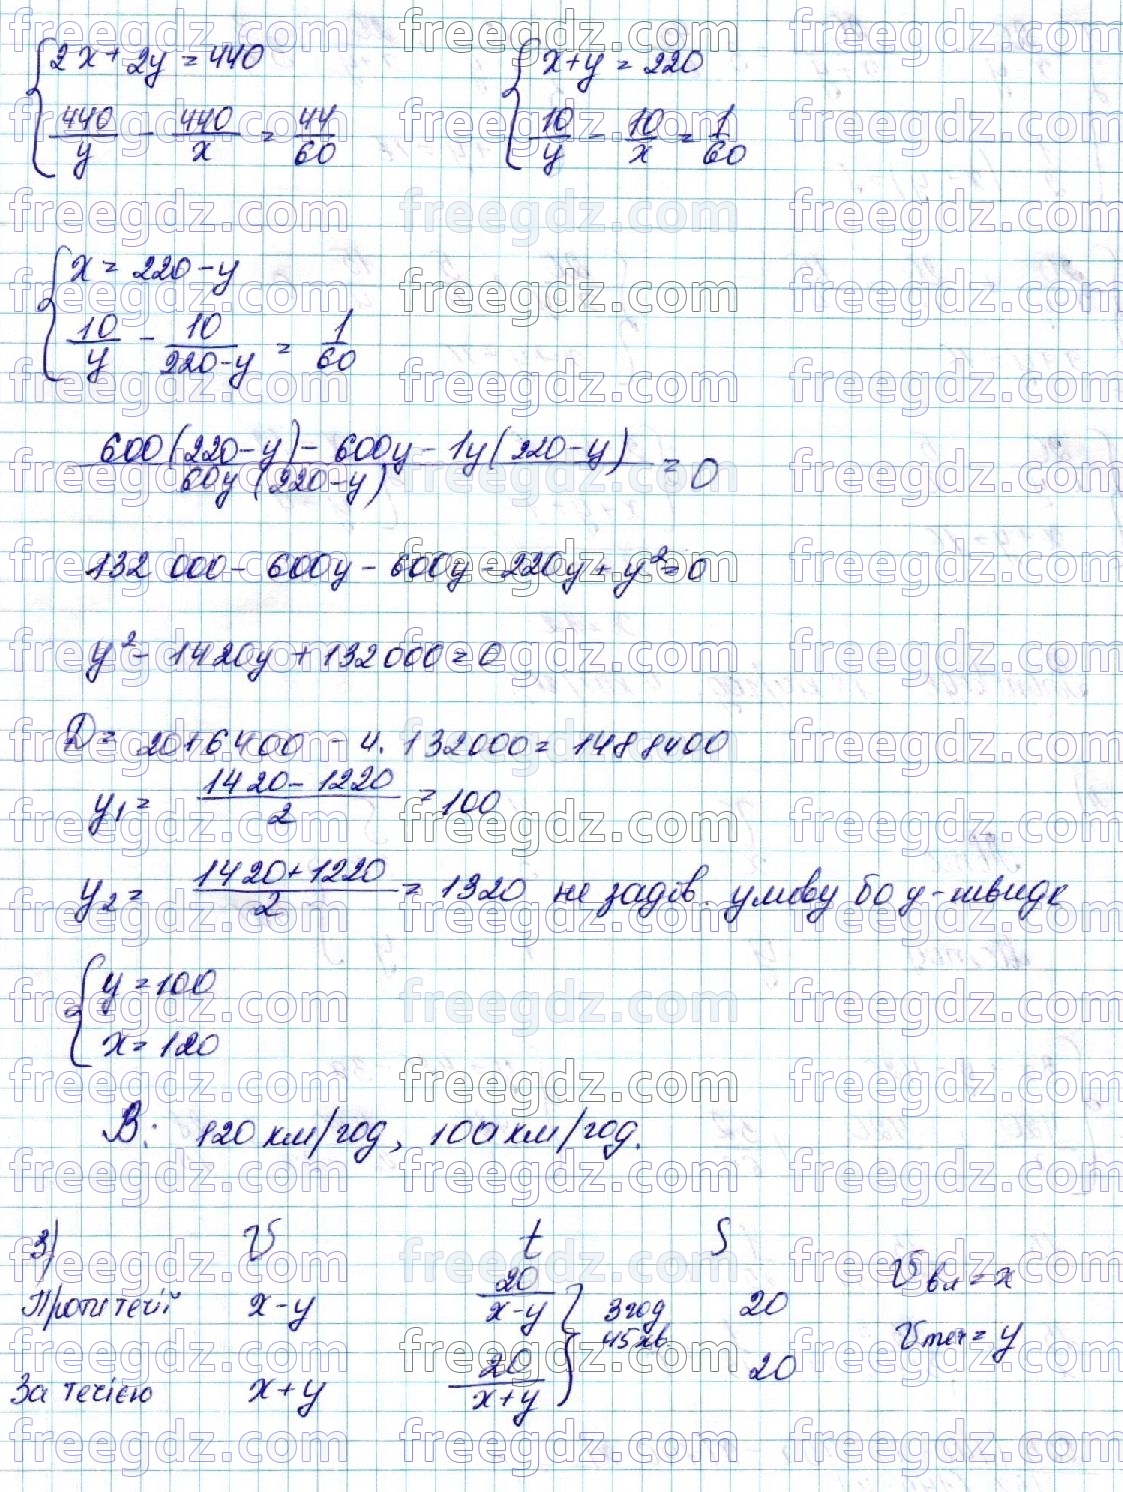 {2x + 2y = 440 {x + y = 220
440/y - 440/x = 44/60 10/y - 10/x = 1/60
{x = 220 - y
10/y - 10/(220-y) = 1/60
(600(220-y) - 600y - 1y(220-y))/(60y(220-y)) = 0
132 000 - 600y - 600y - 220y + y² = 0
y² - 1420y + 132000 = 0
D = 2016400 - 4·132000 = 1488400
y₁ = (1420 - 1220)/2 = 100
y₂ = (1420 + 1220)/2 = 1320 не задов. умову бо y - швидк
{y = 100
x = 120
В: 120 км/год, 100 км/год.
3) V t S
Проти течії x-y 20/(x-y) } 3 год 20 Vвл = x
45 хв. Vтеч = y
За течією x+y 20/(x+y) 20
freegdz.com